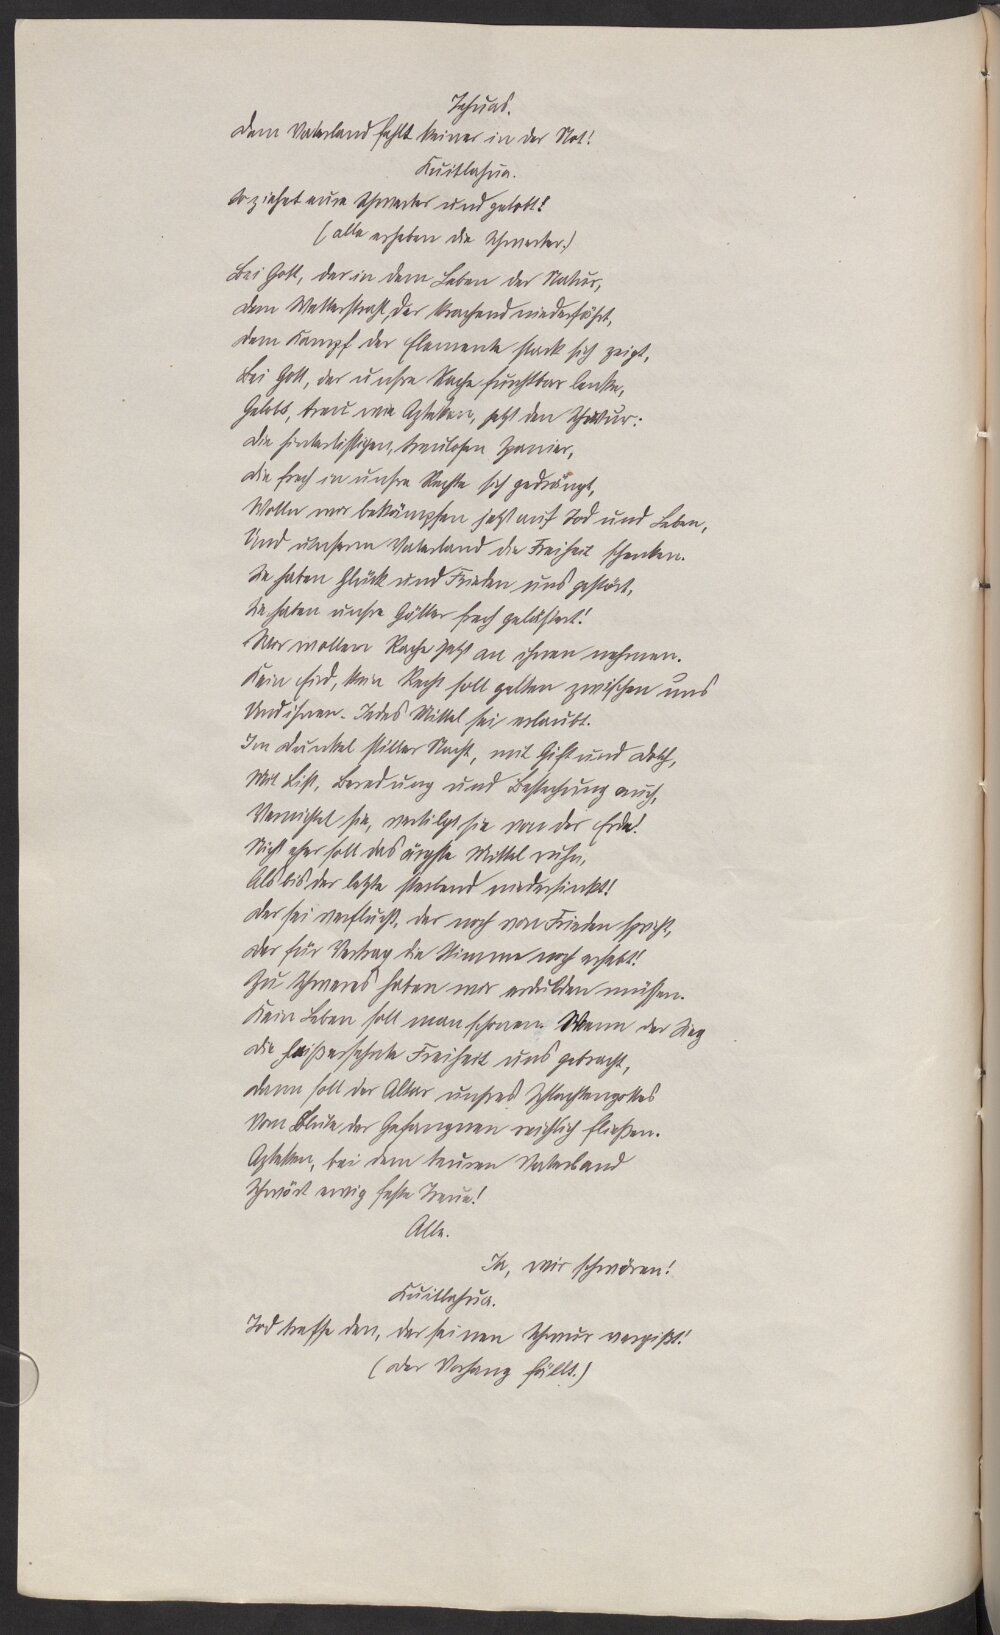 Tehuas.
Dem Vaterland fehlt keiner in der Not!
Kuitlahua.
So ziehet eure Schwerter und gelobt!
(alle erheben die Schwerter.)
Bei Gott, der in dem Leben der Natur,
Dem Wetterstrahl, der krachend niederfährt,
Dem Kampf der Elemente stark sich zeigt,
Bei Gott, der unsre Rache furchtbar lenke,
Gelobt, treu wie Azteken, jetzt den Schwur:
Die hinterlistigen, treulosen Spanier,
Die frech in unsre Rechte sich gedrängt,
Wollen wir bekämpfen jetzt auf Tod und Leben,
Und unserm Vaterland die Freiheit schenken.
Sie haben Glück und Frieden uns gestört,
Sie haben unsre Götter frech gelästert!
Wir wollen Rache jetzt an ihnen nehmen.
Kein Eid, kein Recht soll gelten zwischen uns
Und ihnen. Jedes Mittel sei erlaubt.
Im Dunkel stiller Nacht, mit Gift und Dolch,
Mit List, Beredung und Bestechung auch,
Vernichtet sie, vertilgt sie von der Erde!
Nicht eher soll das ärgste Mittel ruhn,
Als bis der letzte sterbend niedersinkt!
Der sei verflucht, der noch von Frieden spricht,
Der für Vertrag die Stimme noch erhebt!
Zu Schweres haben wir erdulden müssen.
Kein Leben soll man schonen. Wenn der Sieg
Die heißersehnte Freiheit uns gebracht,
Dann soll der Altar unsres Schlachtengottes
Vom Blute der Gefangnen reichlich fließen.
Azteken, bei dem teuren Vaterland
Schwört ewig feste Treue!
Alle.
Ja, wir schwören!
Kuitlahua.
Tod treffe den, der seinen Schwur vergißt!
(Der Vorhang fällt.)